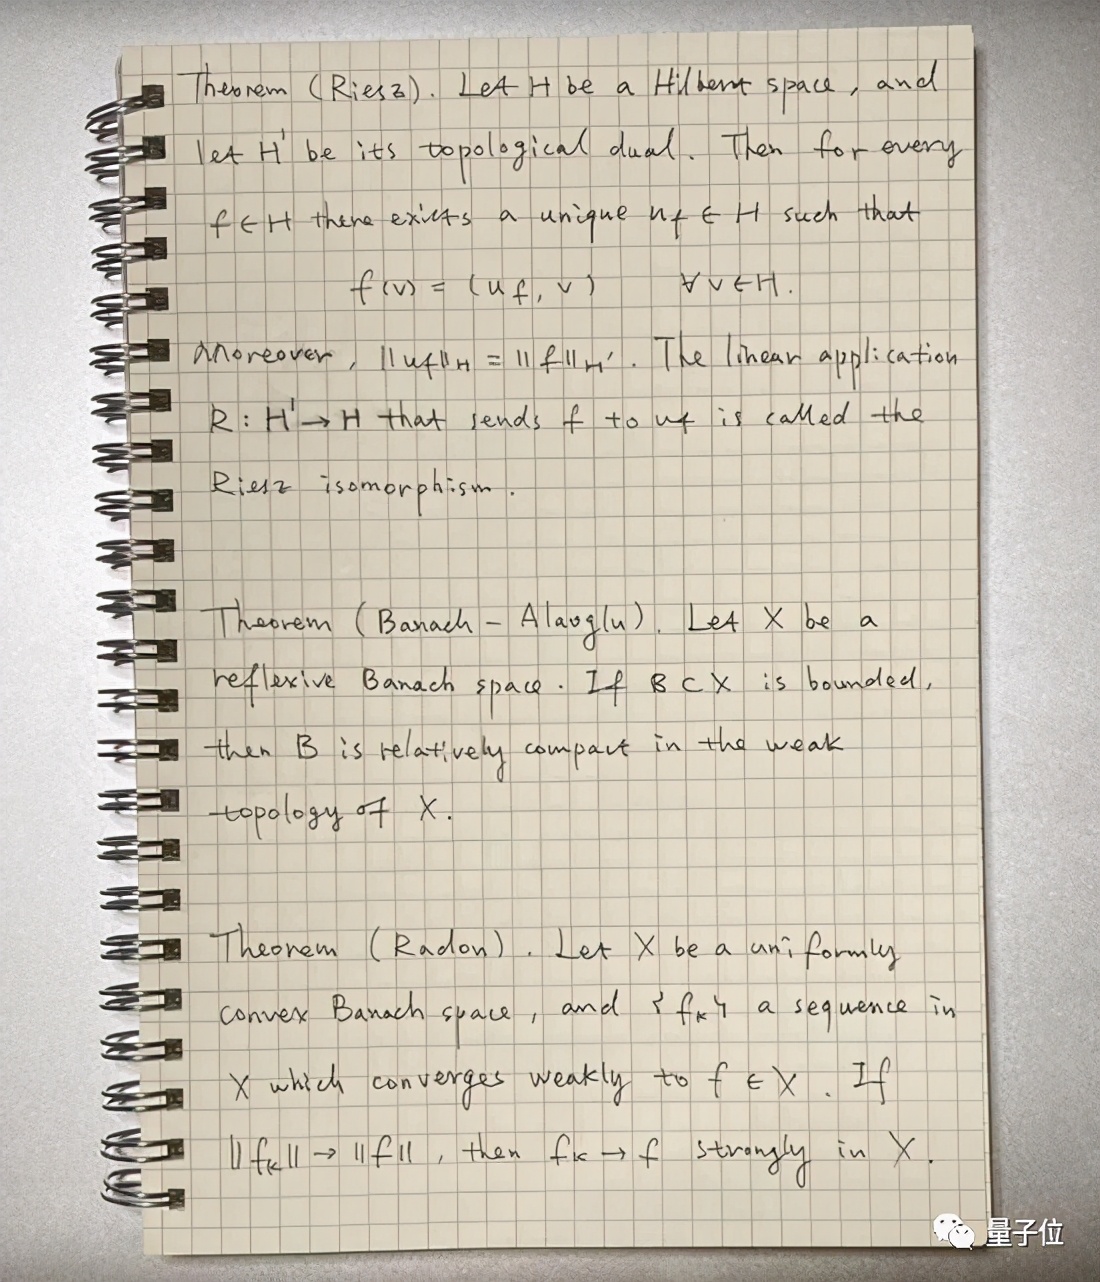 Theorem (Riesz). Let H be a Hilbert space, and
let H' be its topological dual. Then for every
f ∈ H there exists a unique u_f ∈ H such that
f(v) = (u_f, v) ∀ v ∈ H.
Moreover, ||u_f||_H = ||f||_H'. The linear application
R : H' → H that sends f to u_f is called the
Riesz isomorphism.
Theorem (Banach - Alaoglu). Let X be a
reflexive Banach space. If B ⊂ X is bounded,
then B is relatively compact in the weak
topology of X.
Theorem (Radon). Let X be a uniformly
convex Banach space, and {f_k} a sequence in
X which converges weakly to f ∈ X. If
||f_k|| → ||f||, then f_k → f strongly in X.
量子位